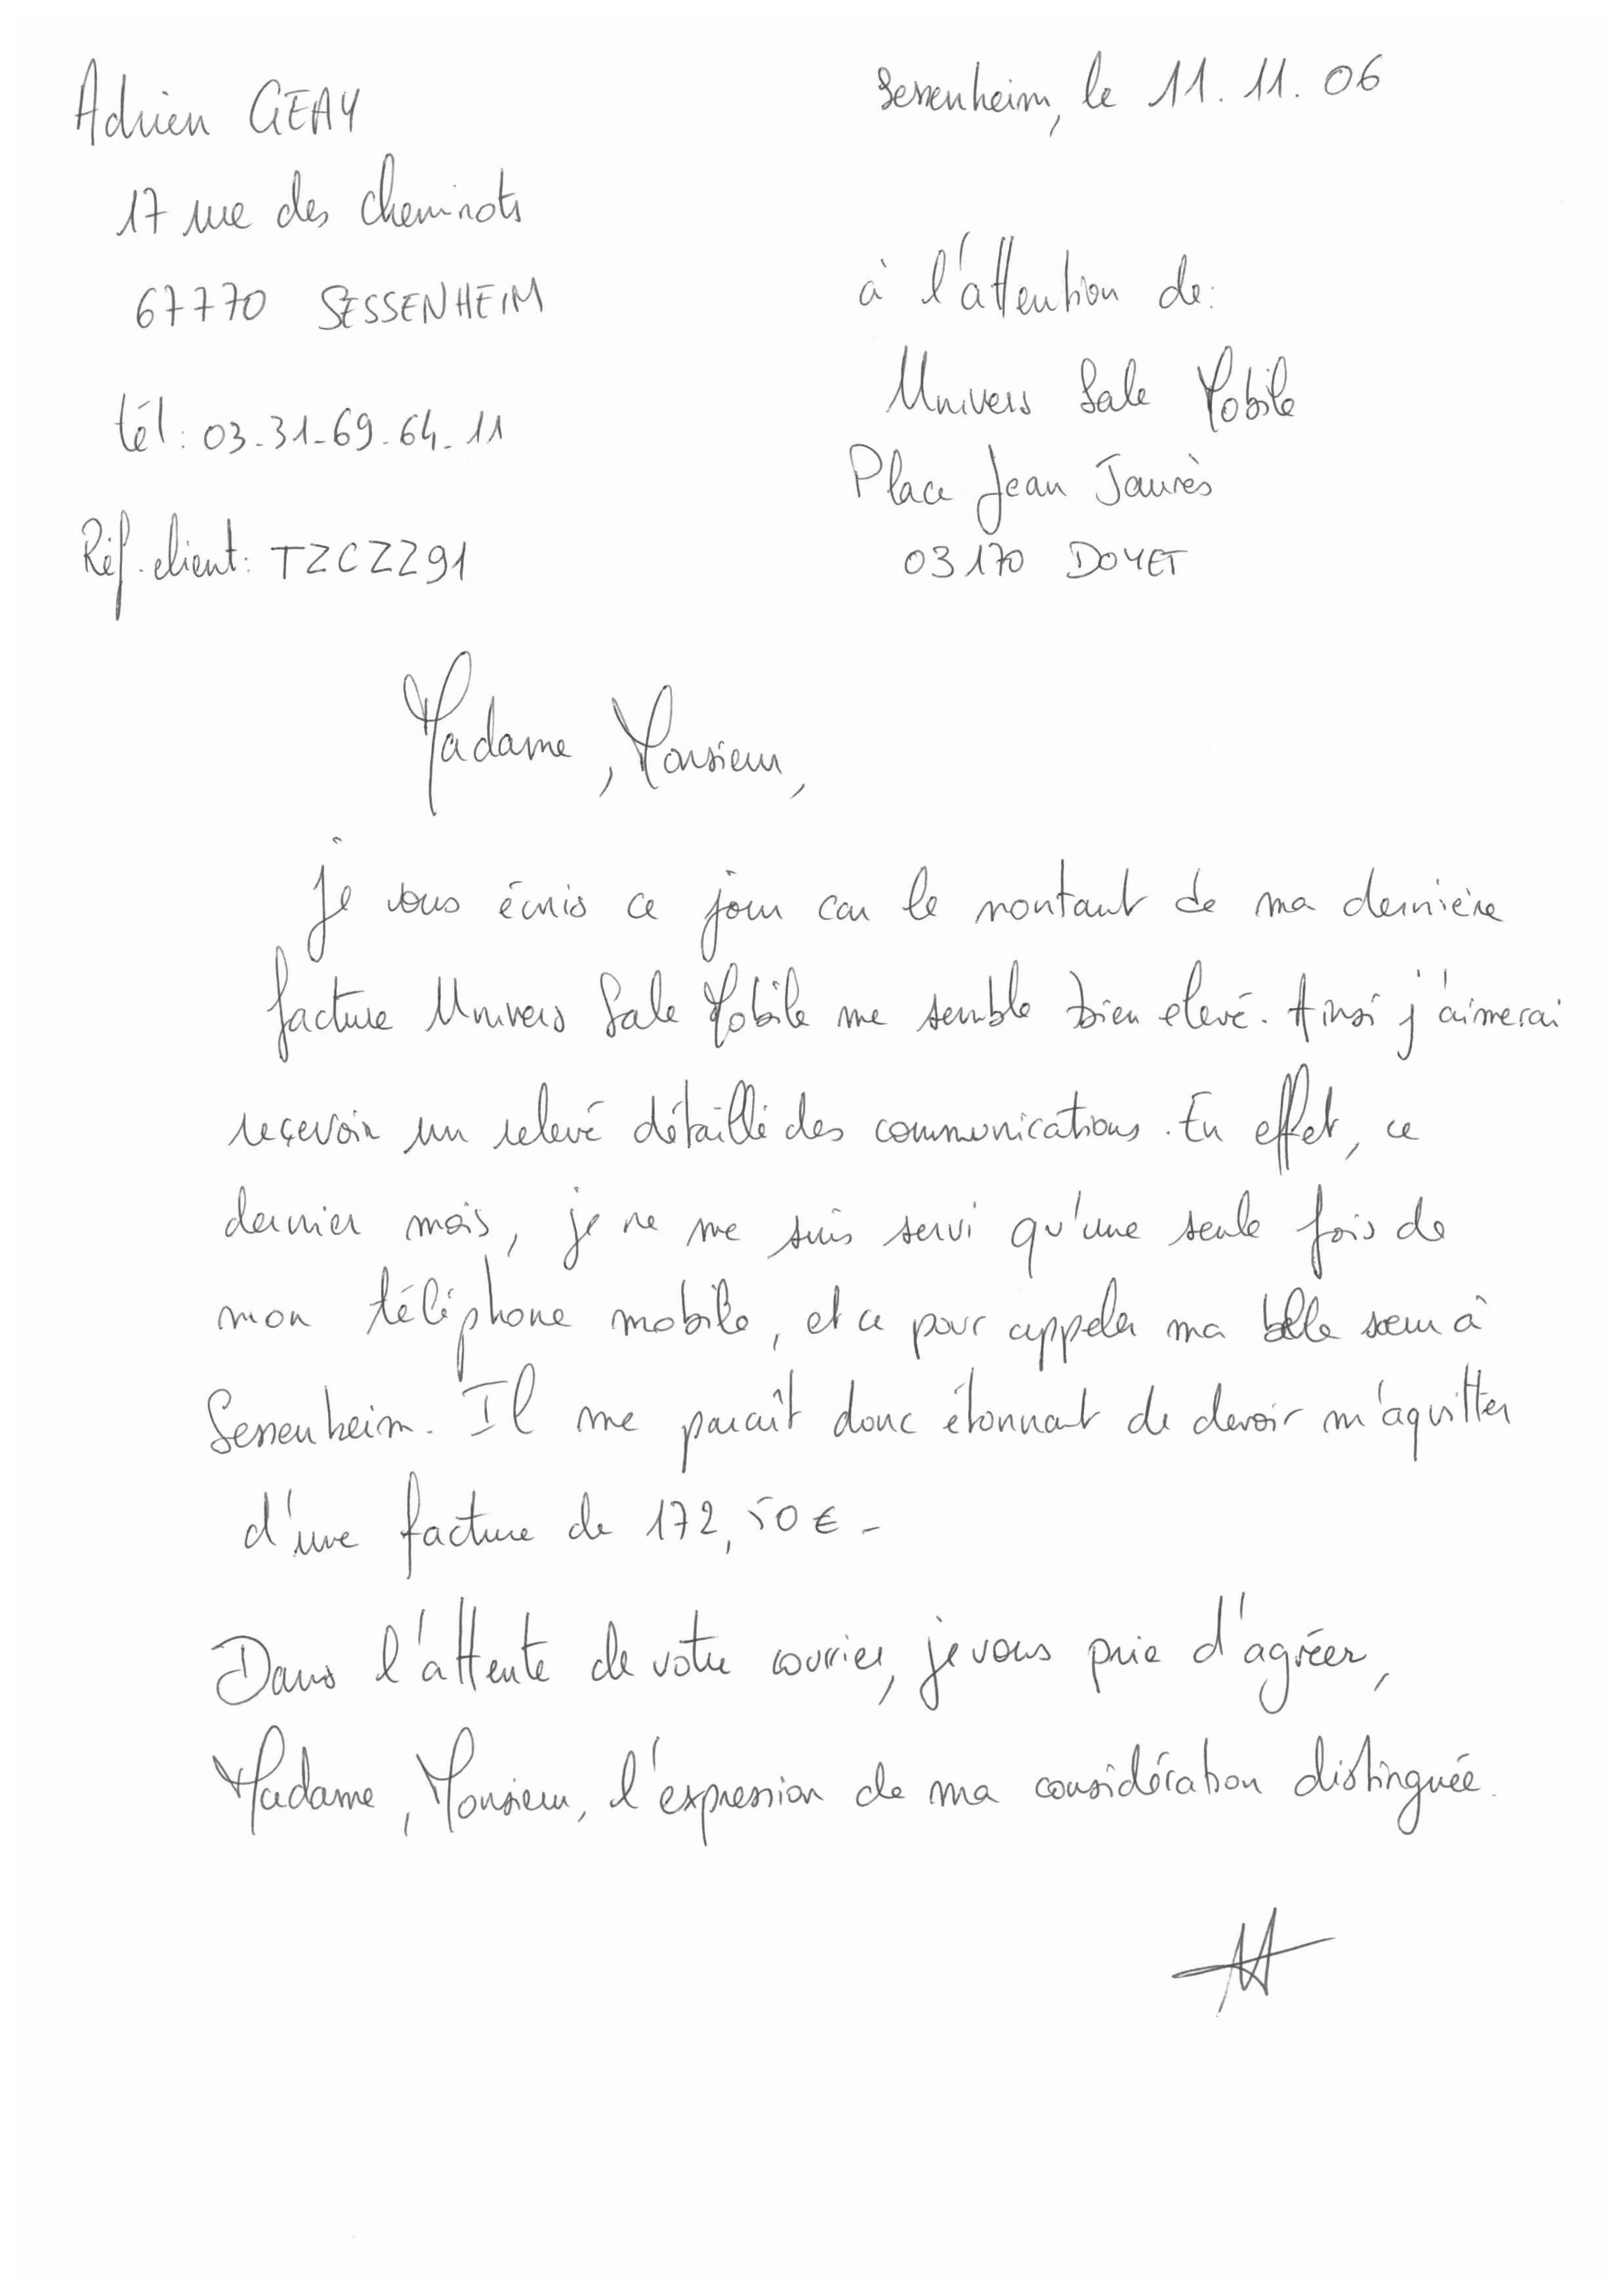 Adrien GEAY
17 rue des cheminots
67770 SESSENHEIM
tél: 03-31-69-64-11
Réf. client: TZCZZ91
Sessenheim, le 11.11.06
à l'attention de:
Univers Sale Mobile
Place Jean Jaurès
03170 DOYET
Madame, Monsieur,
je vous écris ce jour car le montant de ma dernière
facture Univers Sale Mobile me semble bien elevé. Ainsi j'aimerai
reçevoir un relevé détaillé des communications. En effet, ce
dernier mois, je ne me suis servi qu'une seule fois de
mon téléphone mobile, et ce pour appeler ma belle soeur à
Sessenheim. Il me paraît donc étonnant de devoir m'aquitter
d'une facture de 172,50€-
Dans l'attente de votre courrier, je vous prie d'agréer,
Madame, Monsieur, l'expression de ma considération distinguée.